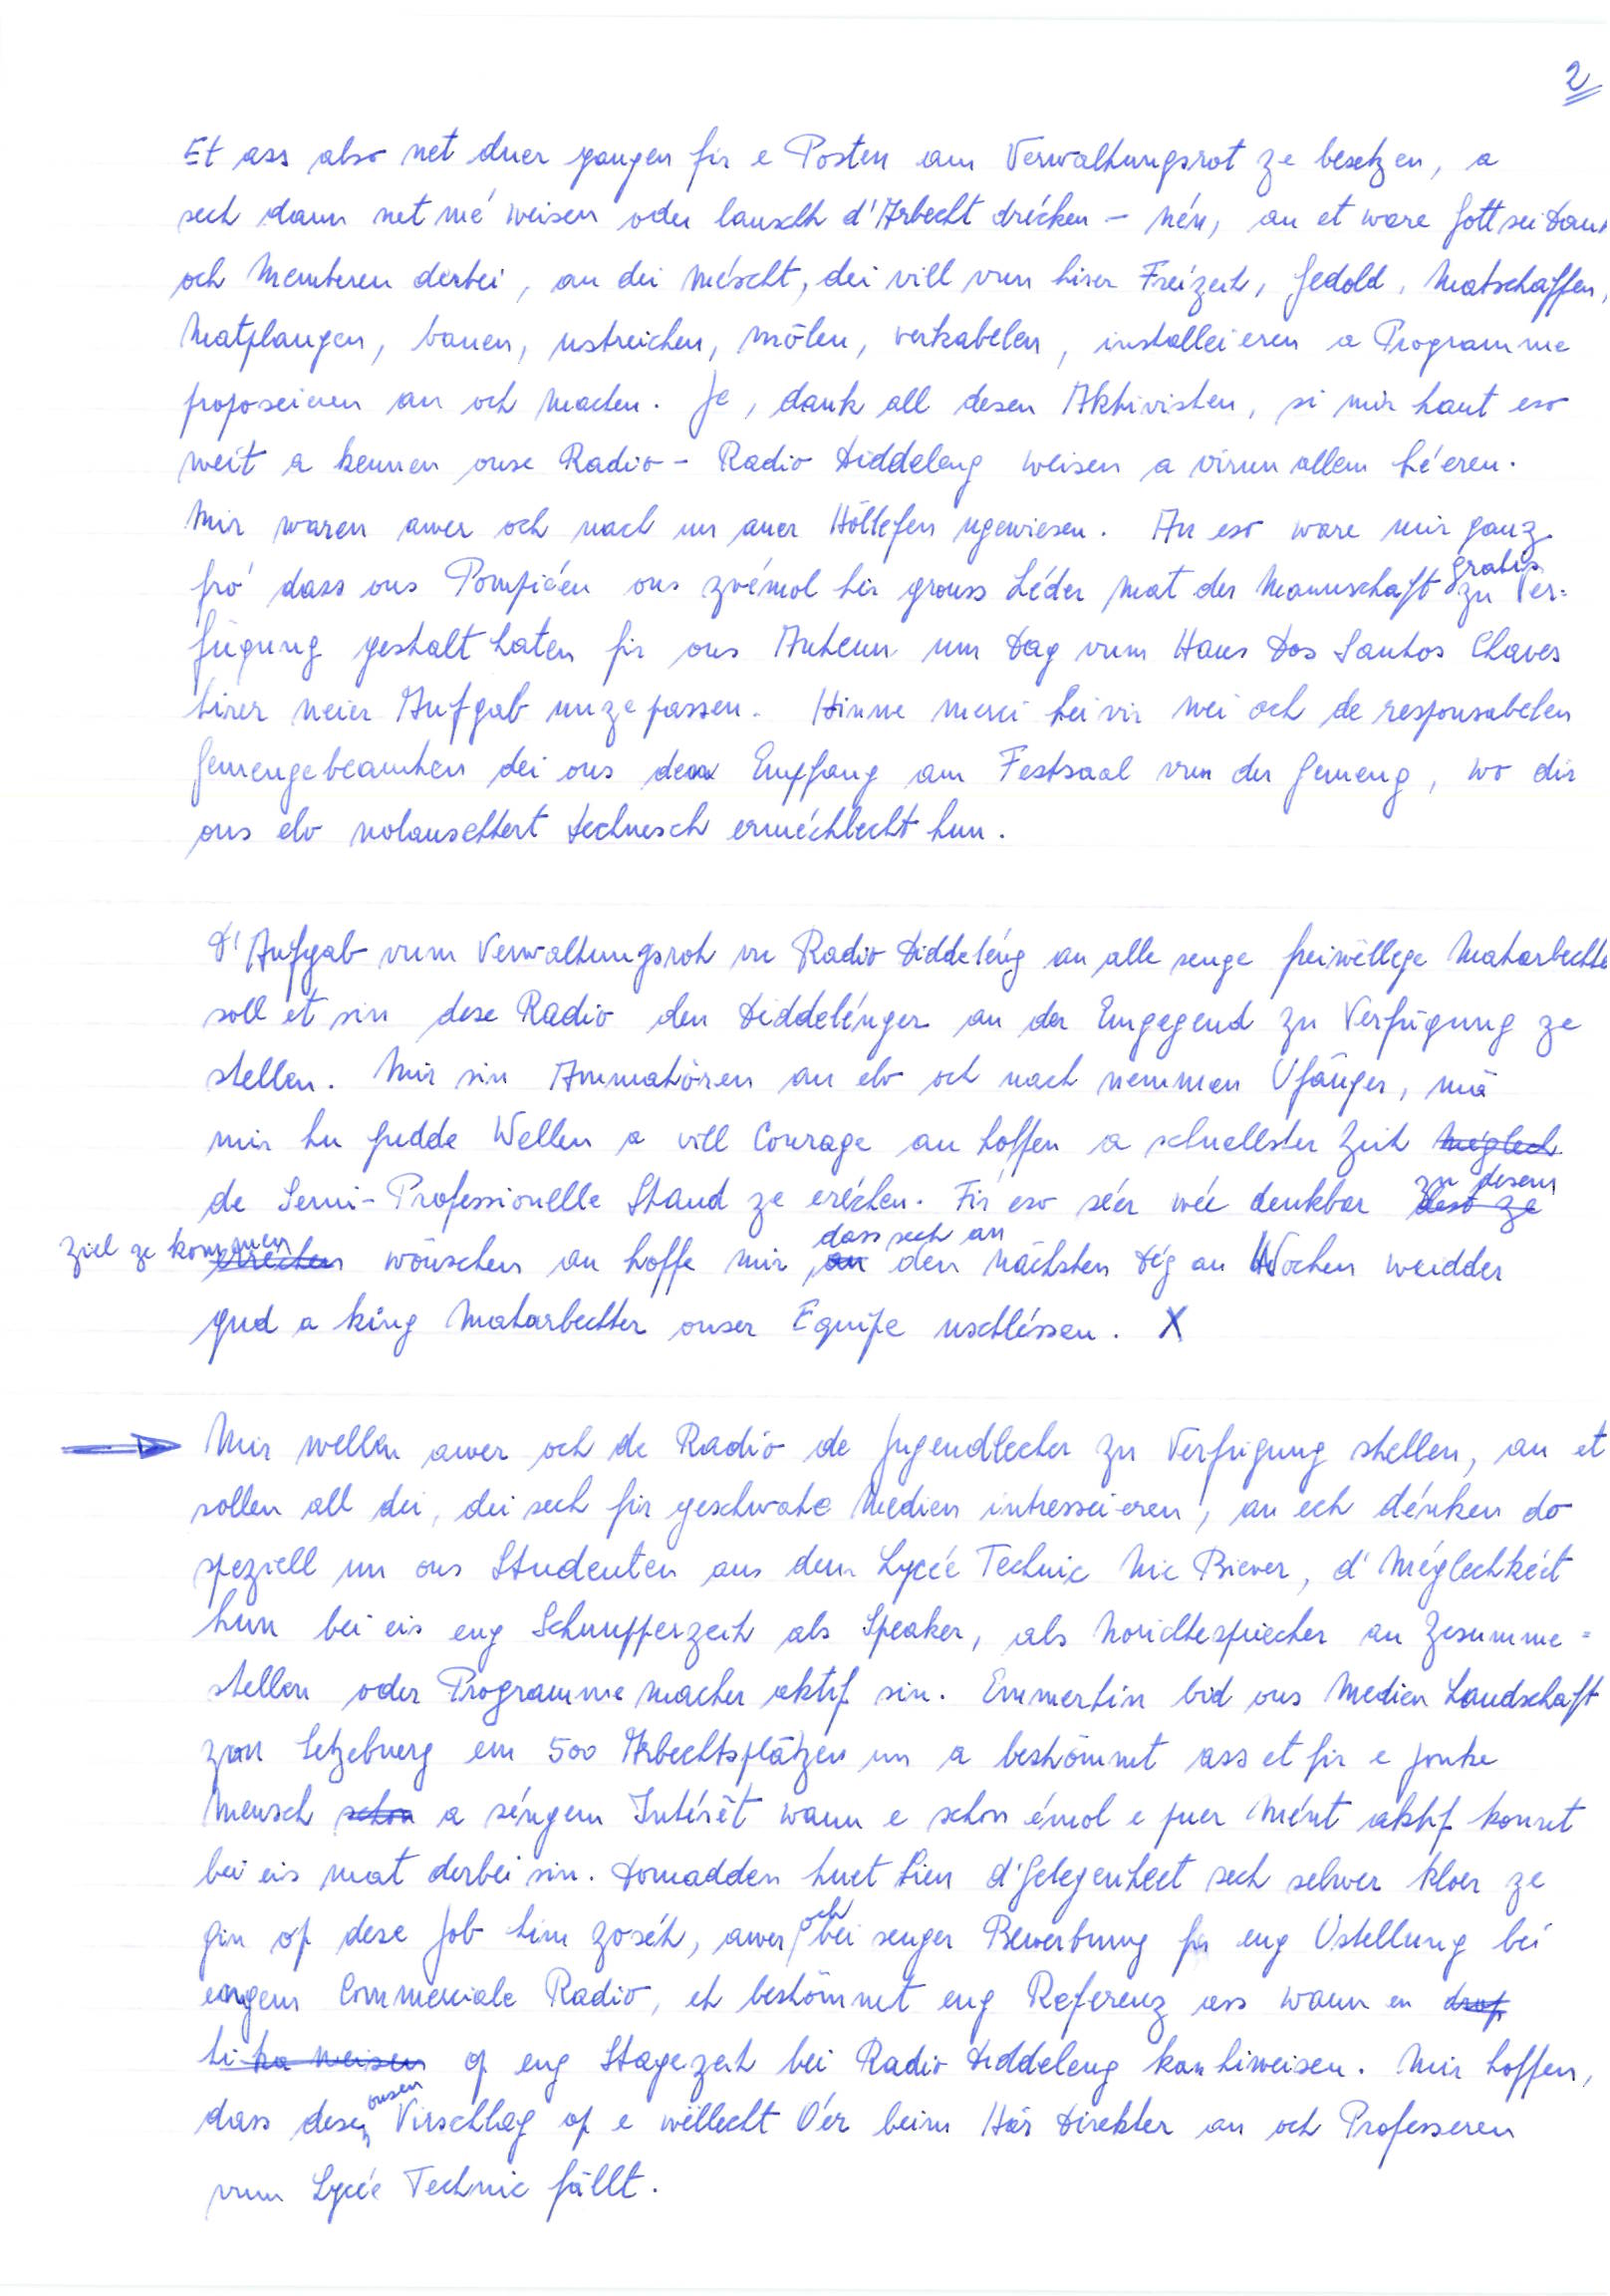 2
Et ass also net drer gangen fir e Posten am Verwaltungsrot ze besetzen, a
sech dann net mé weisen oder lauschth d'Arbecht drécken - nén, an et ware Gott sei Dank
och Memberen derbei, an dei méscht, dei vill vun hirer Freizeit, Gedold, Matschaffen,
Matplangen, bauen, ustreichen, mölen, verkabelen, installeieren a Programme
proposeieren an och machen. Je, dank all desen Aktivisten, si mir haut eso
weit a kennen onse Radio - Radio Diddeleng weisen a virun allem hé'eren.
Mir waren awer och nach un aner Höllefen ugewiesen. An eso ware mir ganz
fró dass ons Pompiéen ons zvémol hir grouss Léder mat der Mannschaft gratis zu Ver=
fügung gestalt haten fir ons Antenn um Dag vum Haus Dos Santos Chaves
hirer neier Aufgab unzepassen. Hinne merci heivir wei och de responsabelen
Gemengebeamten dei ons den Empfang am Festsaal vun der Gemeng, wo dir
ons elo nolauschtert technesch erméchlecht hun.
D'Aufgab vum Verwaltungsrot vu Radio Diddeléng an alle senge freiwëllege Matarbechter
soll et sin dese Radio den Diddelénger an der Emgegend zu Verfügung ze
stellen. Mir sin Ammatören an elo och nach nemmen Ufänger, mä
mir hu gudde Wellen a vill Courage an hoffen a schnellster Zeit méglech
de Semi-Professionelle Stand ze eréchen. Fir eso séer wéi denkbar dest ze zu desem
Ziel ze kommen erréchen wönschen an hoffe mir, an dass sech an den nächsten Dég an Wochen weidder
gud a king Matarbechter onser Equipe uschléssen. X
Mir wellen awer och de Radio de Jugendlecher zu Verfügung stellen, an et
sollen all dei, dei sech fir geschwate Medien intresseieren, an ech dénken do
speziell un ons Studenten aus dem Lycée Technic Nic Biever, d'Méglechkéet
hun bei eis eng Schnupperzeit als Speaker, als Noriichtespriecher an Zesumme=
stellen oder Programme macher aktif sin. Emmerhin bid ons Medien Landschaft
zon Letzebuerg em 500 Arbechtsplätzen un a bestömmt ass et fir e jonke
Mensch schon a séngem Intérêt wann e schon émol e puer Mént aktif konnt
bei eis mat derbei sin. Domadden huet hien d'Gelegenheet sech selwer kloer ze
gin op dese Job him zoséht, awer och bei senger Bewerbung fir eng Ustellung bei
engem Commerciale Radio, et bestömmt eng Referenz ass wann en drop
hi ka weisen op eng Stagezeit bei Radio Diddeleng kan hiweisen. Mir hoffen,
dass desen onsen Virschlag op e wëllecht O'er beim Här Direkter an och Professeren
vum Lycée Technic fällt.